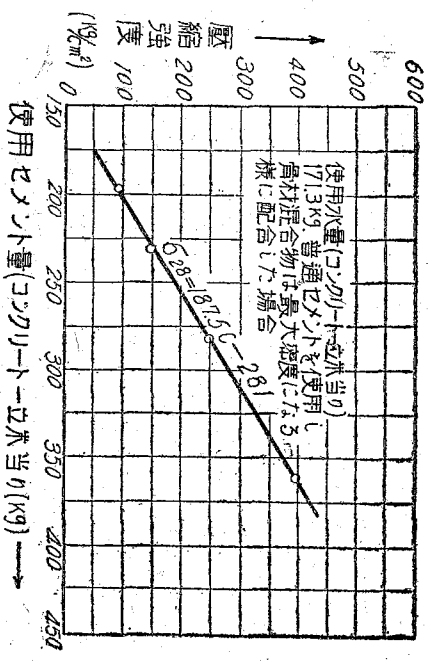 壓縮強度
(kg/cm²)
0
100
200
300
400
500
600
使用水量(コンクリート一立米当り)
171.3kg 普通セメントを使用し
骨材混合物は最大密度になる
様に配合した場合
σ28=187.5C-281
150
200
250
300
350
400
450
使用セメント量(コンクリート一立米当り(kg)